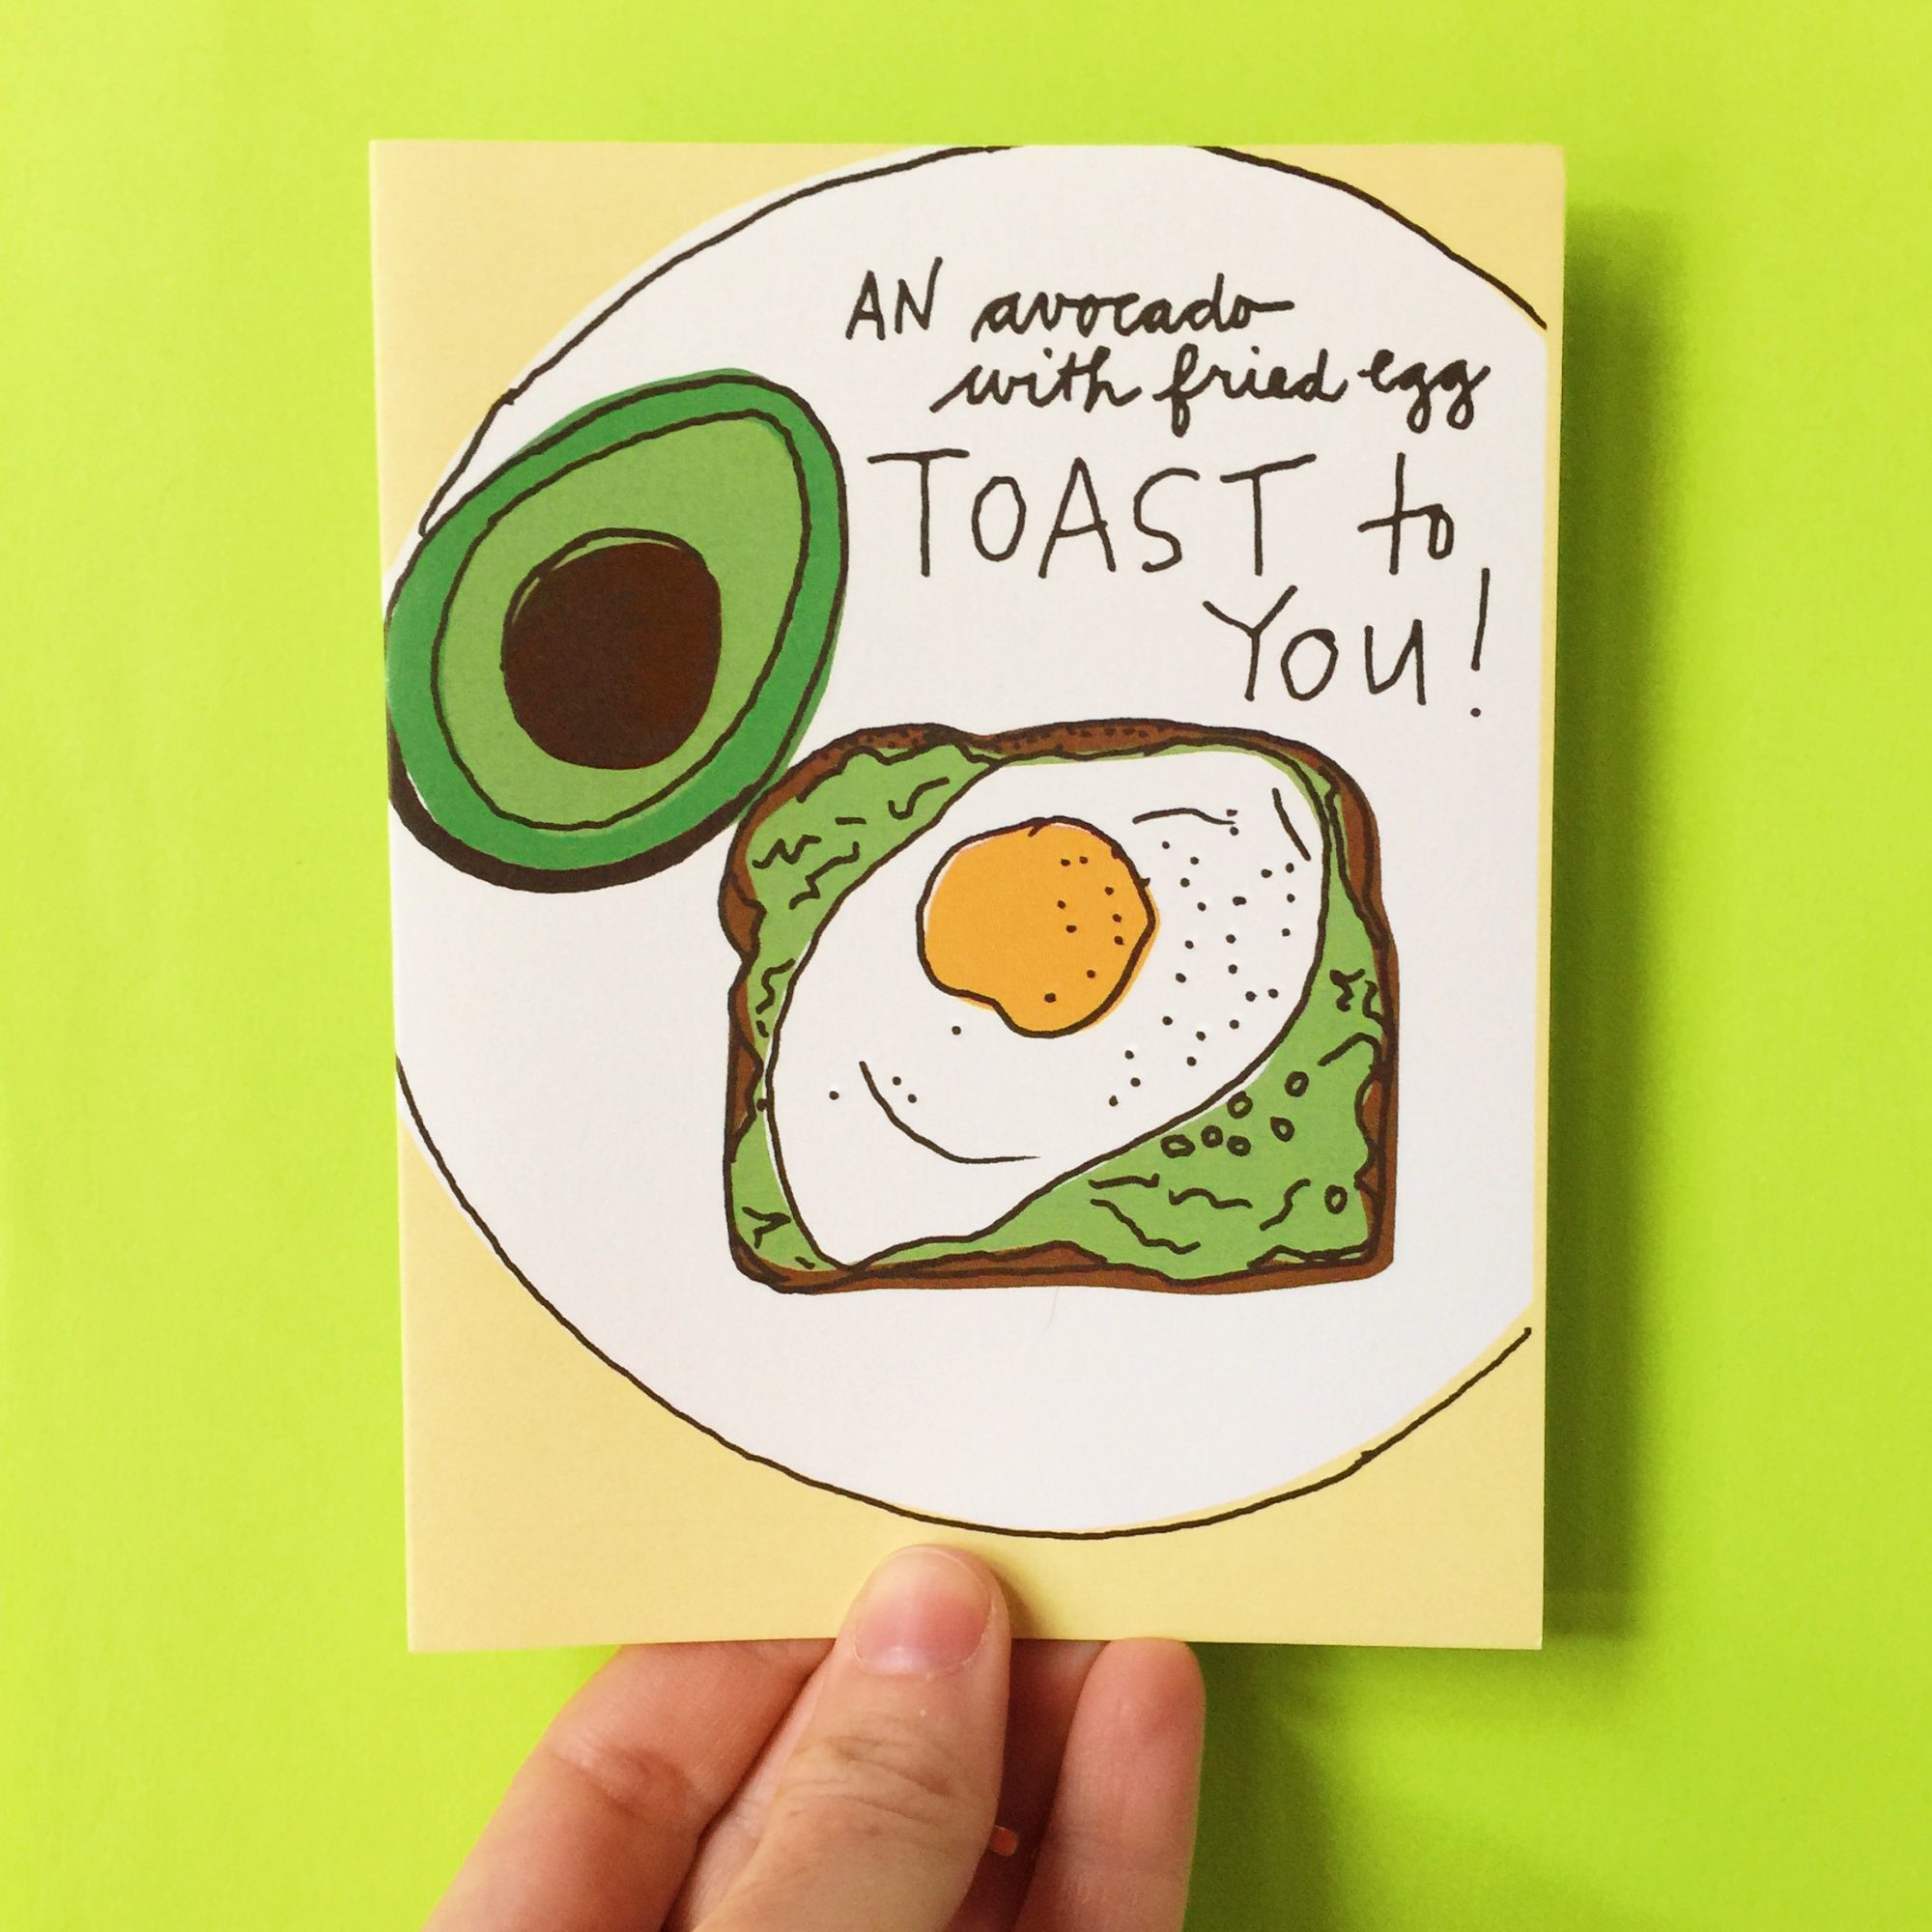 AN avocado
with fried egg
TOAST to
YOU!